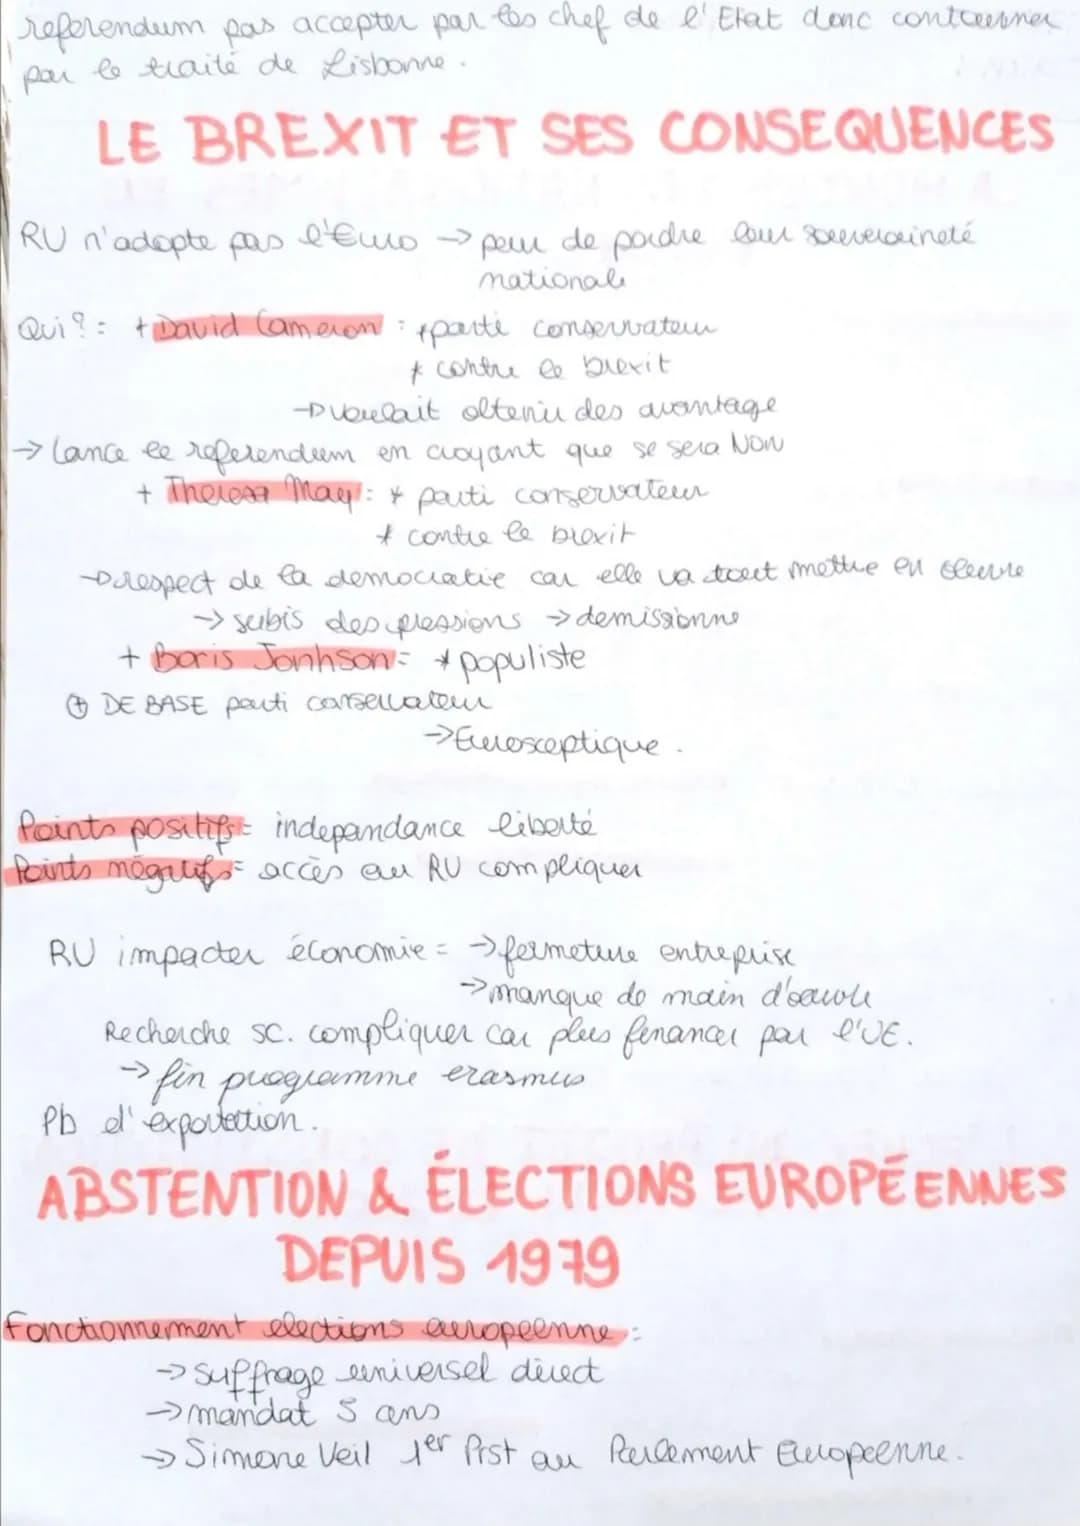 referendum pas accepter par les chef de l'Etat donc contourner
par le traité de Lisbonne.
LE BREXIT ET SES CONSEQUENCES
RU n'adopte pas l'Euro → peur de perdre leur souveraineté
nationale
Qui? : + David Cameron : + parti conservateur
* contre le brexit
→ voulait obtenir des avantage
→ Lance le referendum en croyant que se sera NON
+ Theresa May : * parti conservateur
* contre le brexit
→ respect de la democratie car elle va tout mettre en oeuvre
→ subis des pressions → demissionne
+ Boris Jonhson = * populiste
⊕ DE BASE parti conservateur
→ Eurosceptique.
Points positifs = independance liberté
Points négatifs = accès au RU compliquer
RU impacter économie = → fermeture entreprise
→ manque de main d'oeuvre
Recherche sc. compliquer car plus financer par l'UE.
→ fin programme erasmus
Pb d'exportation.
ABSTENTION & ÉLECTIONS EUROPÉENNES
DEPUIS 1979
Fonctionnement elections europeenne :
→ suffrage universel direct
→ mandat 5 ans
→ Simone Veil 1er Prst au Parlement Europeenne.